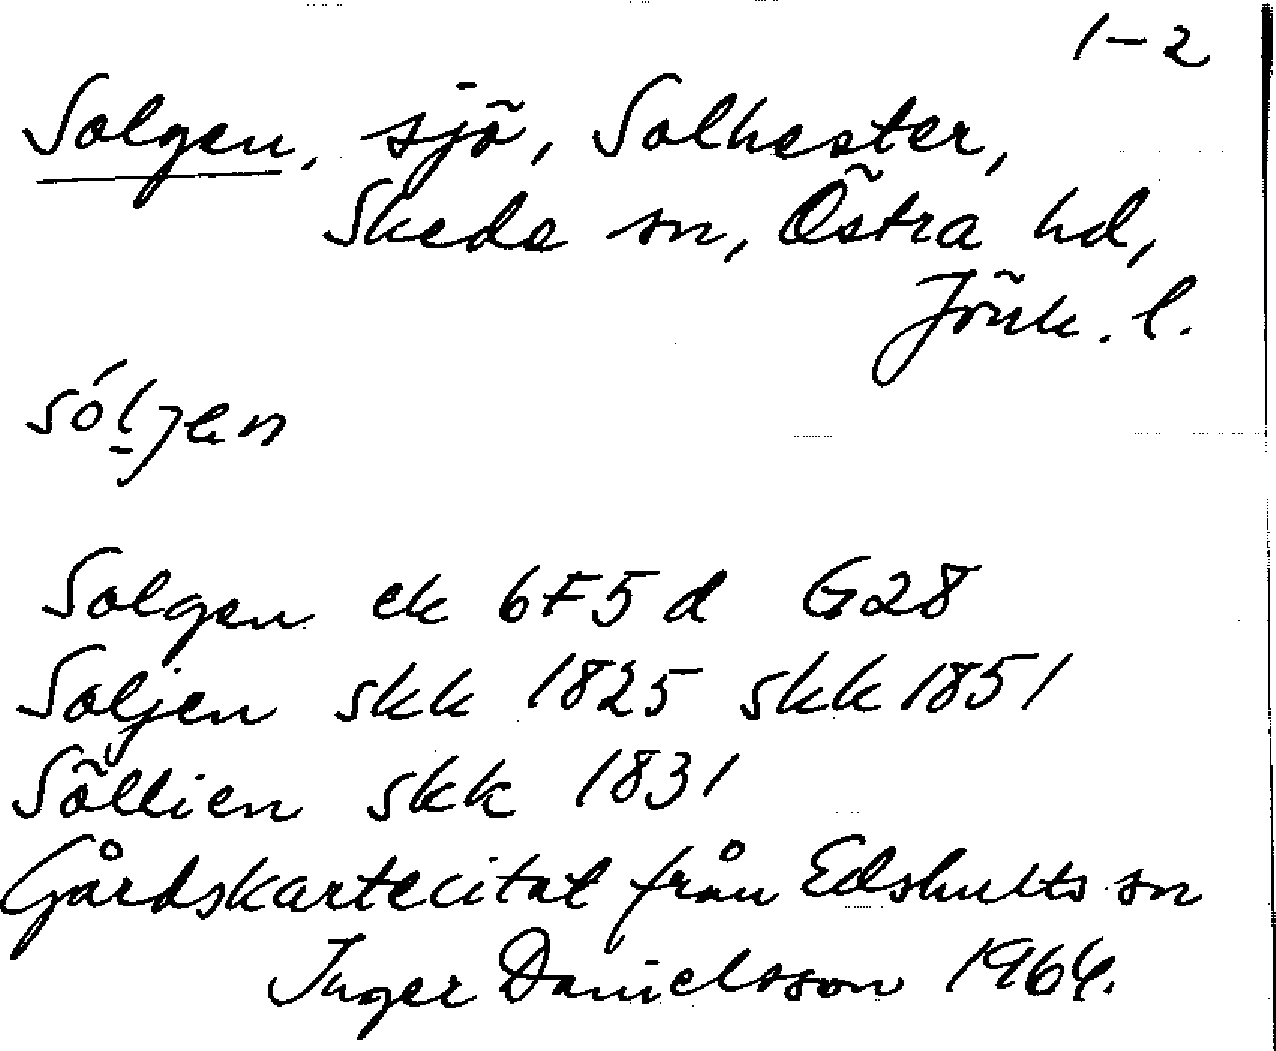 1-2
Solgen, sjö, Solhester,
Skede sn, Östra hd,
Jönk. l.
sóljen
Solgen ek 6F5d G28
Soljen skk 1825 skk 1851
Söllien skk 1831
Gårdskartecitat från Edshults sn
Inger Danielsson 1964.